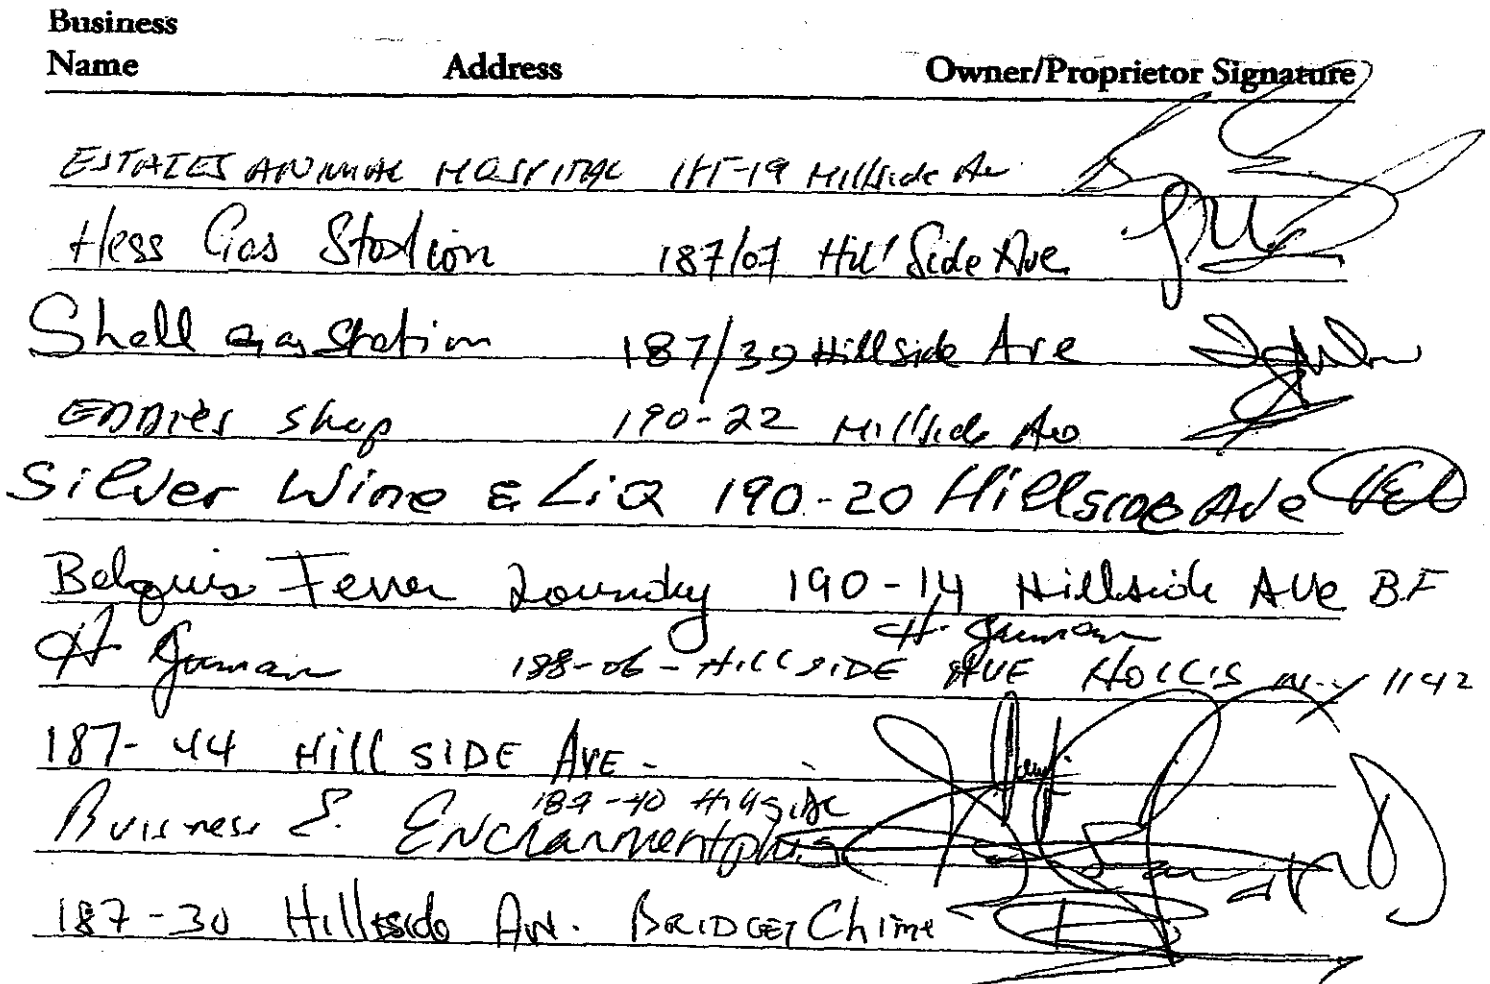 Business
Name Address Owner/Proprietor Signature
ESTATES ANIMAL HOSPITAL -19 Hillside Av
Hess Gas Station 187/07 Hill Side Ave
Shell Gas Station 187/39 Hillside Ave
EDDIES Shop 190-22 Hillside Ave
Silver Wine & LiQ 190-20 Hillside Ave
Belquis Ferrer Laundry 190-14 Hillside Ave B.F
H. Juman
H. Juman 188-06 - HILLSIDE AVE HOLLIS N.Y 1142
187-44 Hill SIDE AVE -
189-40 Hillside
187-30 Hillside Av. BRIDGET Chime